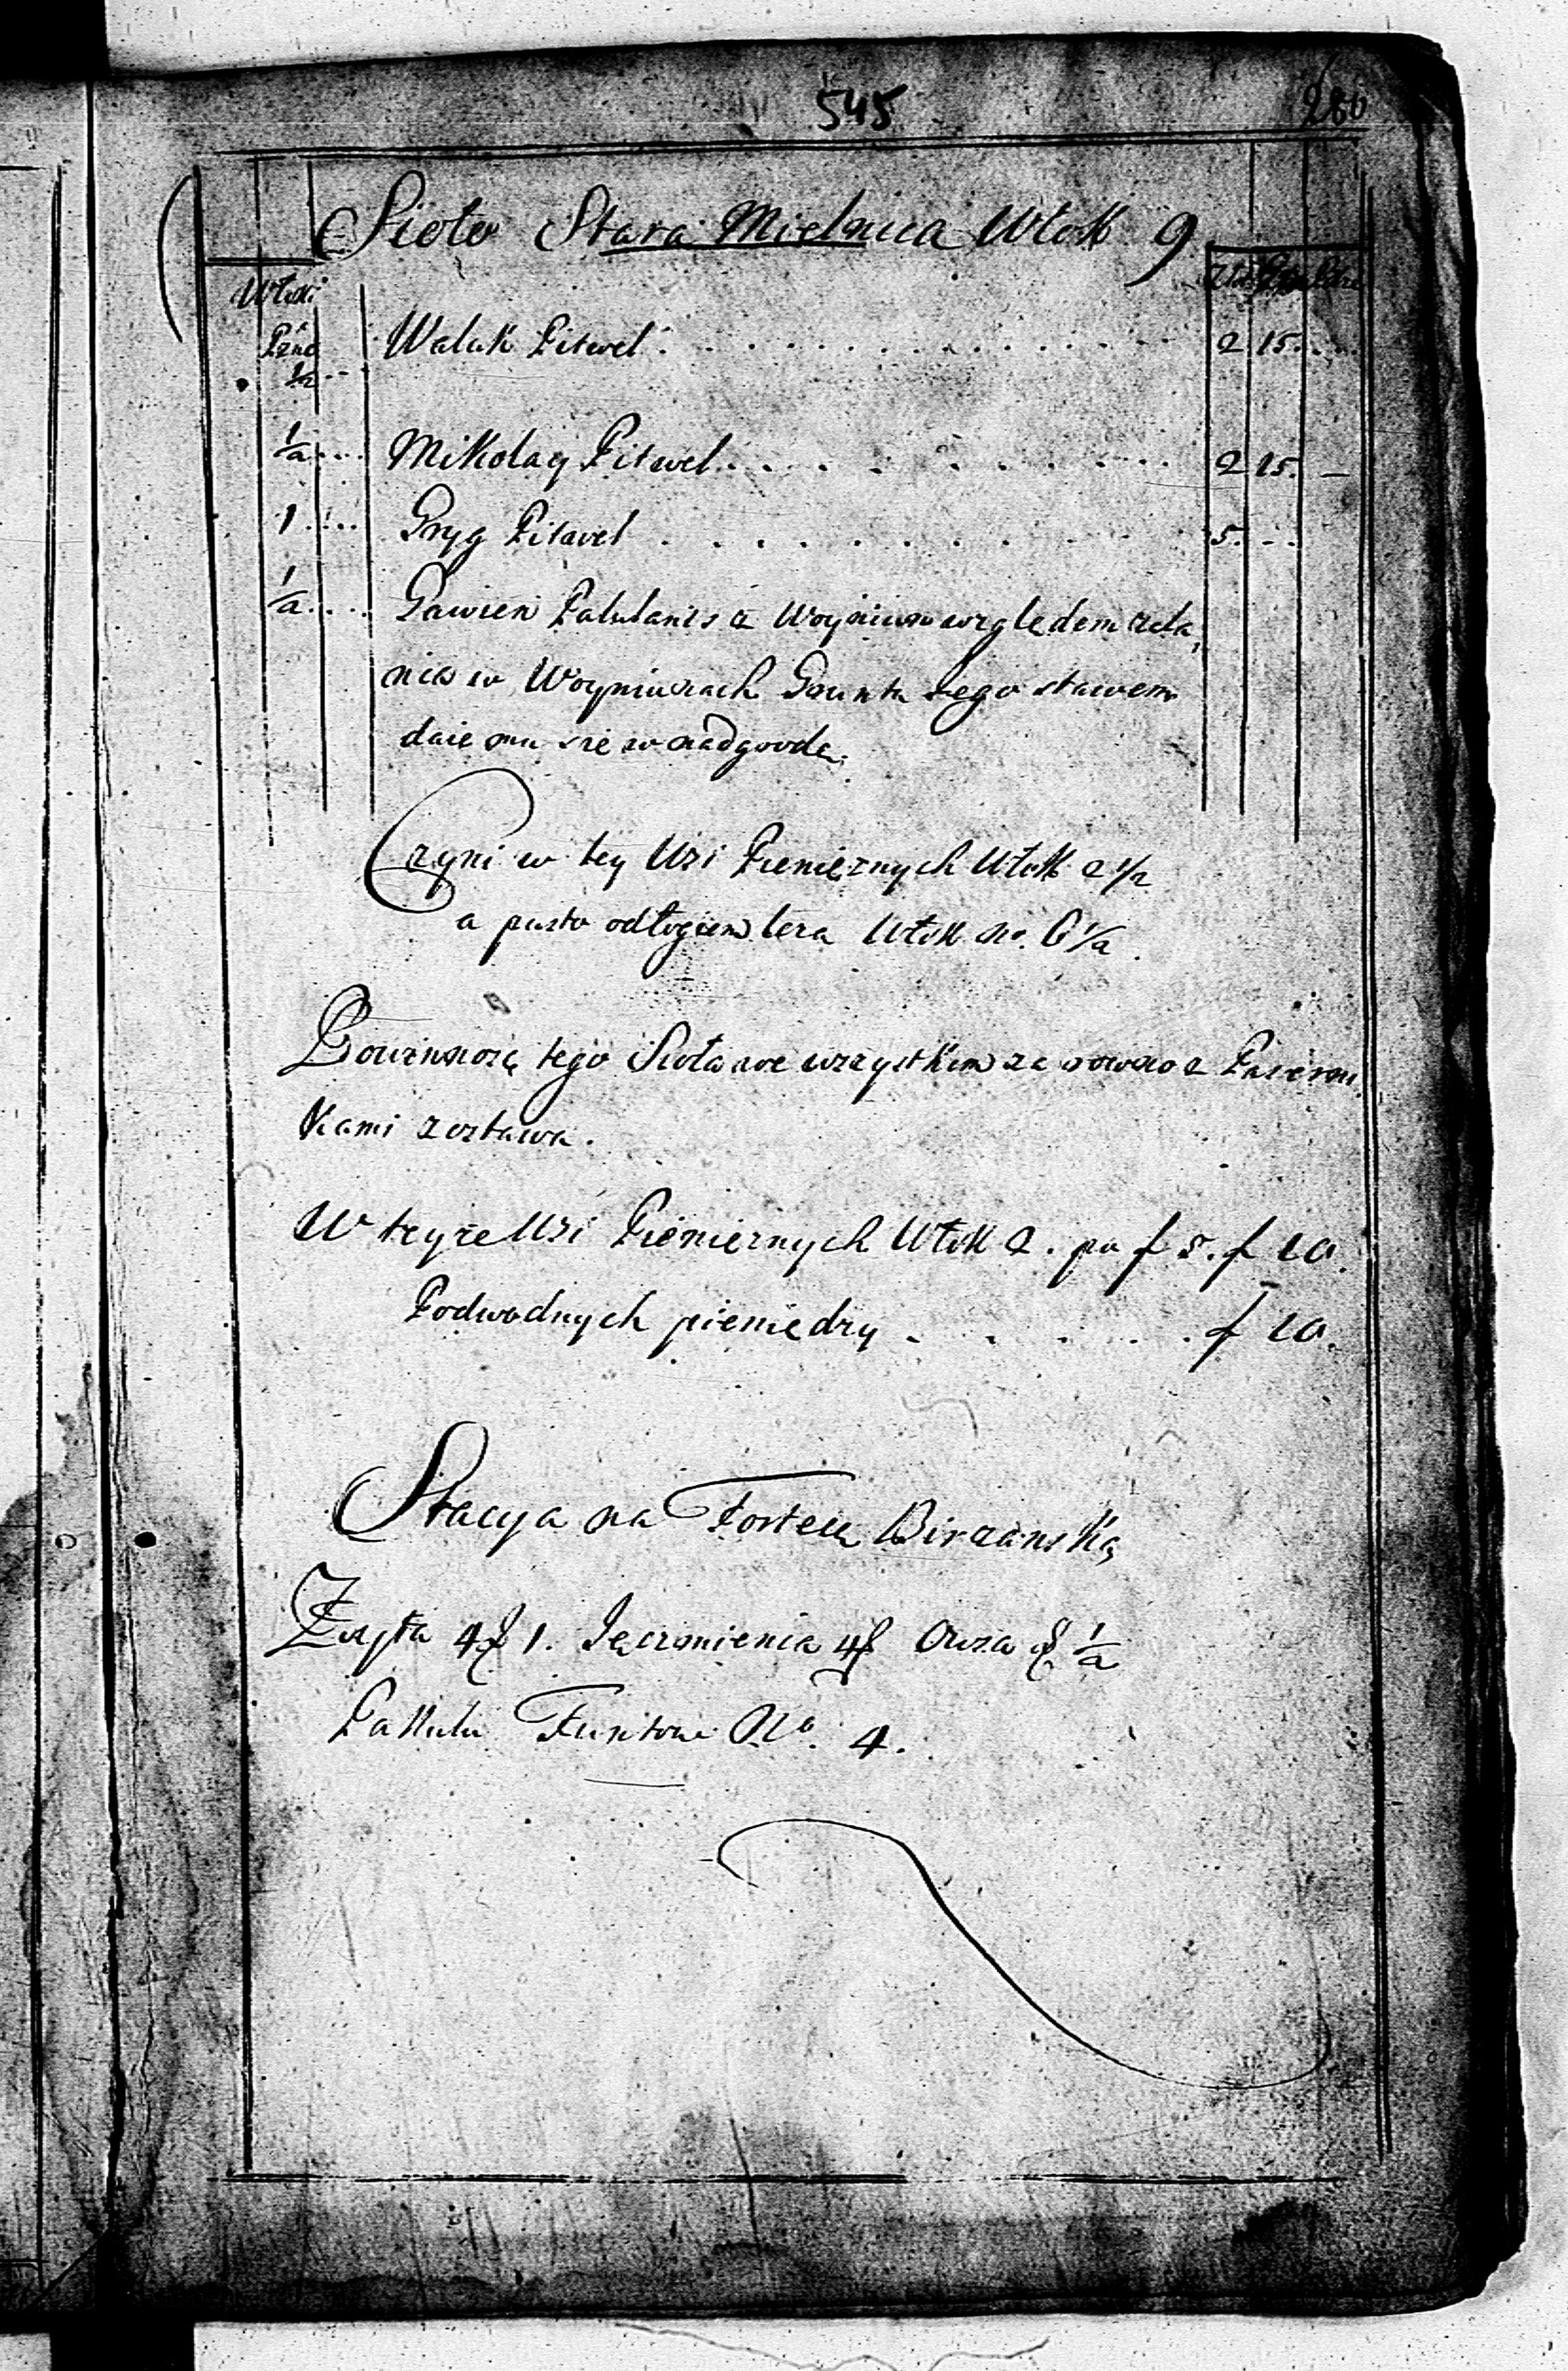 545
280
Sioło Stara Mielnica Włok 9
Włoki
Pzne
1/2 Waluk Pitwel 2 15
1/2 Mikołay Pitwel 2 15 —
1 Gryg Pitwel 5
1/2 Gawień z względem zala
nia w Woyniunach Gruntu Jego stawem
daie mu się w nadgrodę.
Czyni w tey Wsi Pieniężnych Włok 2 1/2
a pusto odłogiem leża Włok No. 6 1/2
Powinność tego Sioła we wszystkim za rowno z
kami zostawa.
W teyże Wsi Pieniężnych Włok 2. po f 5. f 10.
Podwodnych pieniędzy f 10.
Stacya na Fortecę Birżańską
Żyta 1. Jęczmienia Owsa 1/2
Pakulu Funtow No. 4.